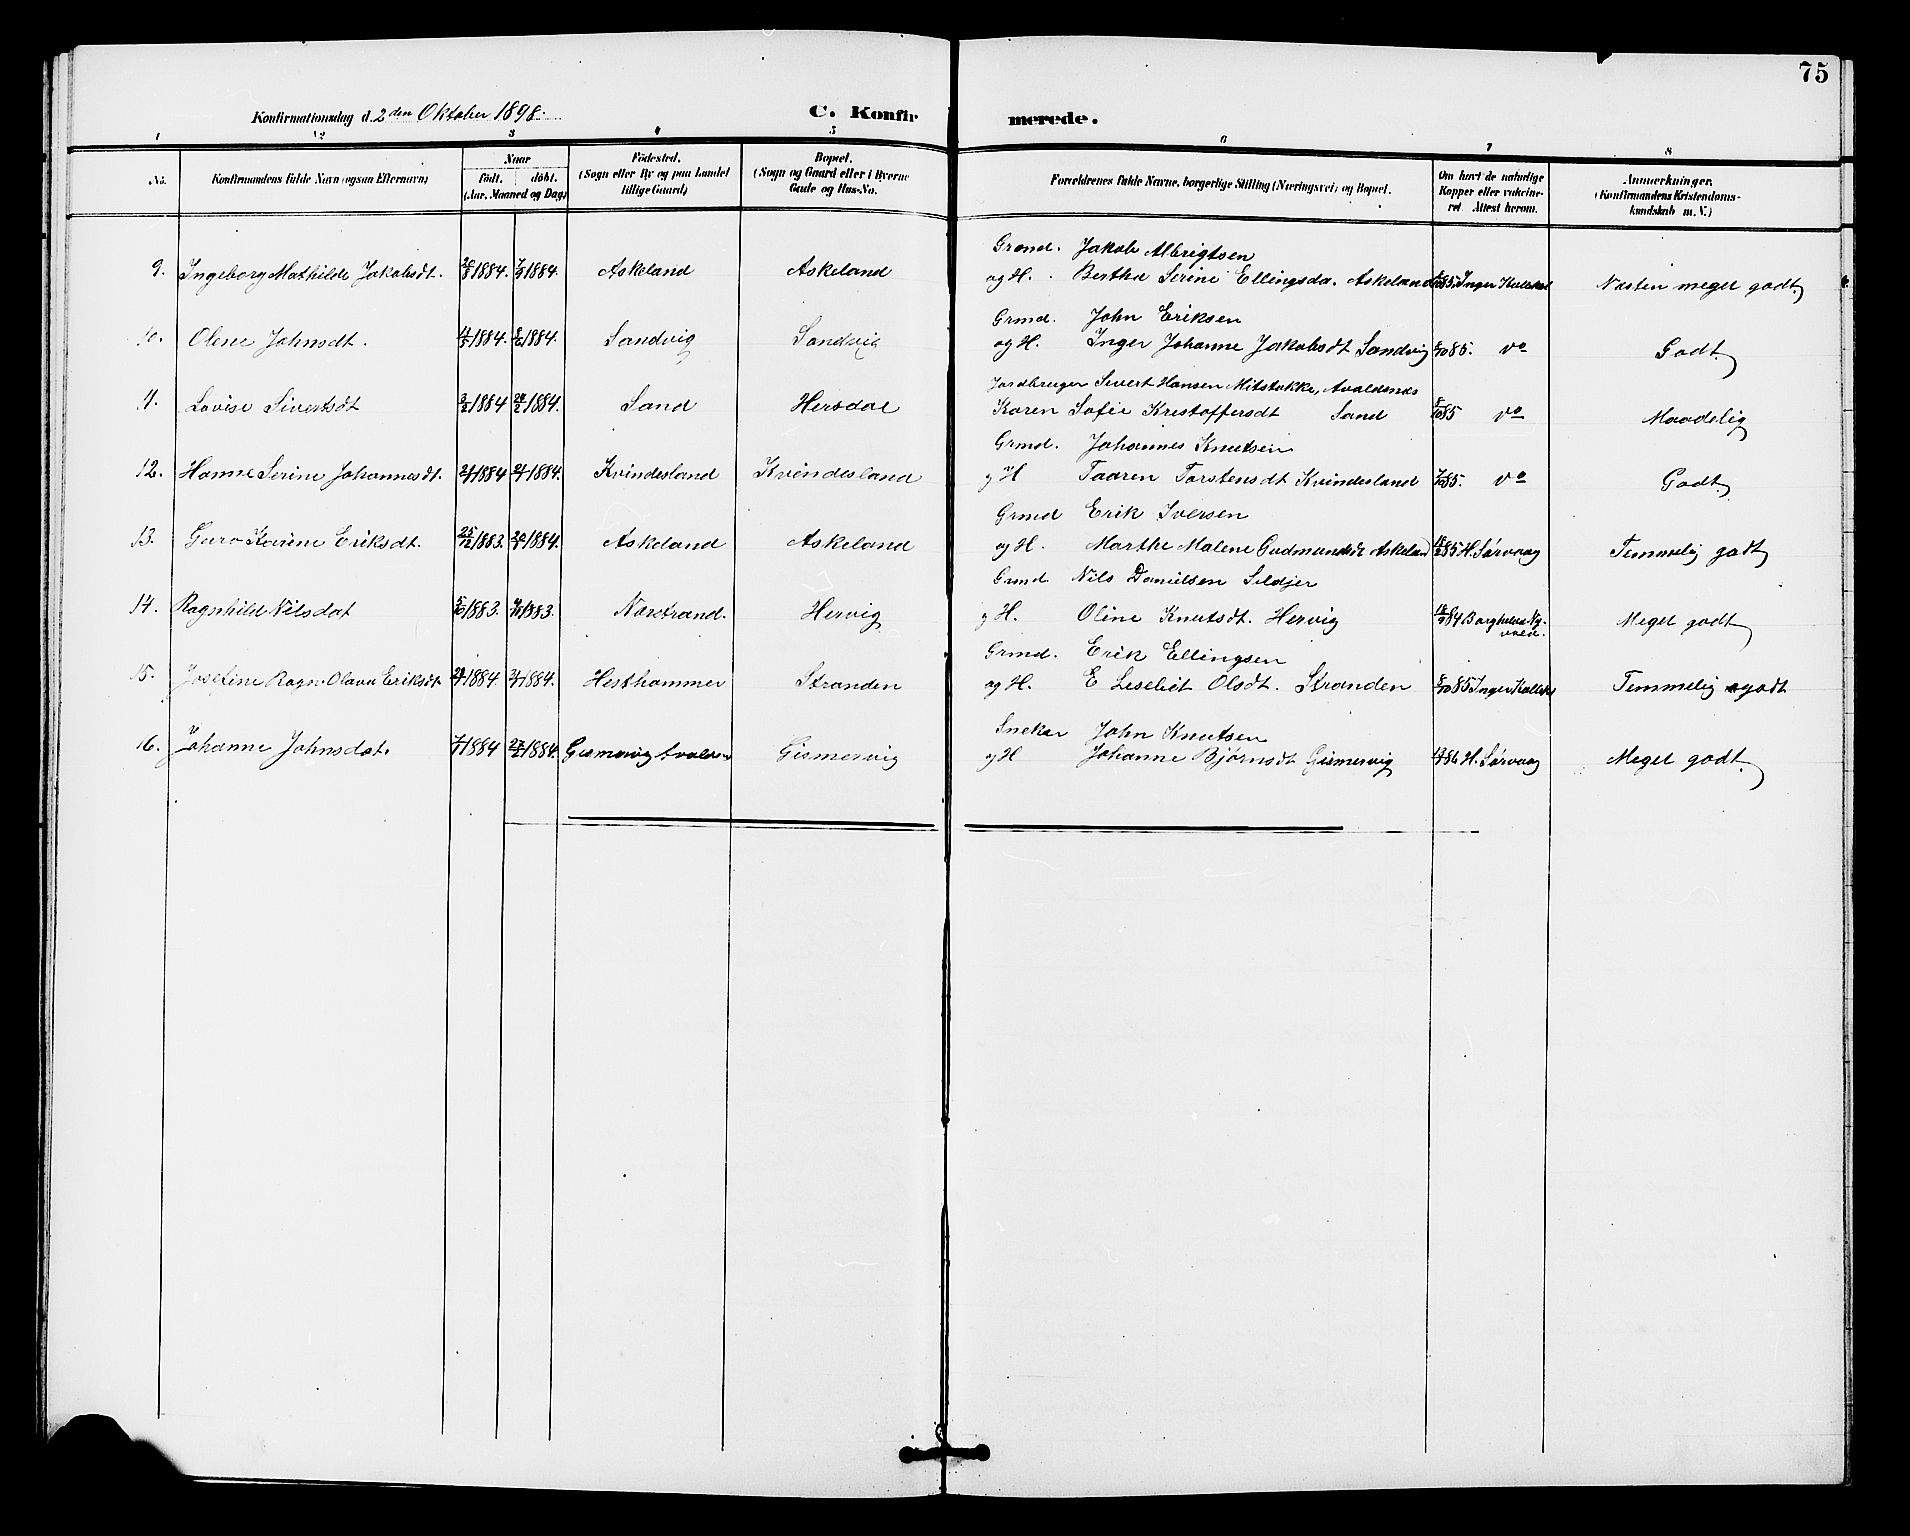 75
Konfirmationsdag d. 2den Oktober 1898.
C. Konfirmerede.
1 2 3 4 5 6 7 8
No. Konfirmandens fulde Navn (ogsaa Efternavn) Naar født. døbt. (Aar, Maaned og Dag) Födested. (Sogn eller By og paa Landet tillige Gaard) Bopæl. (Sogn og Gaard eller i Byerne Gade og Hus-No. Forældrenes fulde Navne, borgerlige Stilling (Næringsvei) og Bopæl. Om havt de naturlige Kopper eller vakcineret. Attest herom. Anmærkninger. (Konfirmandens Kristendomskundskab m. V.)
Grmd. Jakob Albrigtsen
9. Ingeborg Mathilde Jakobsdt. 1884. 1884. Askeland Askeland og H. Bertha Serine Ellingsda. Askeland 85 Inger Næsten meget godt.
Grmd. John Eriksen
10. Olene Johnsdt. 1884. 1884. Sandvig Sandvig og H. Inger Johanne Jakobsdt Sandvig 85. vo Godt.
Jordbruger Sivert Hansen Mitstokke, Avaldsnes
11. Lovise Sivertsdt 1884 1884. Sand Hersdal Karen Sofie Kristoffersdt Sand 85 vo Maadelig
Grmd. Johannes Knutsen
12. Hanne Serine Johannesdt. 1884 1884. Kvindesland Kvindesland og H Taaren Torstensdt Kvindesland 85. vo Godt.
Grmd Erik Iversen
13. Guro Karine Eriksdt. 25/12 1883. 1884. Askeland Askeland og H. Marthe Malene Gudmundsdt Askeland 85 H. Sørvaag Temmelig godt
Grmd Nils Danielsen Seldjer
14. Ragnhild Nilsdat 1883. 1883. Næstrand. Hervig og H. Oline Knutsdt. Hervig 84 Meget godt
Grmd. Erik Ellingsen
15. Josefine Ragn. Olava Eriksdt. 1884 1884. Hesthammer Stranden og H. E Lesebet Olsdt. Stranden 85 Inger Temmelig godt
Sneker John Knutsen
16. Johanne Johnsdat. 1884 1884. Gismervig Gismervig og H Johanne Bjørnsdt Gismervig 86 H. Sørvaag Meget godt.